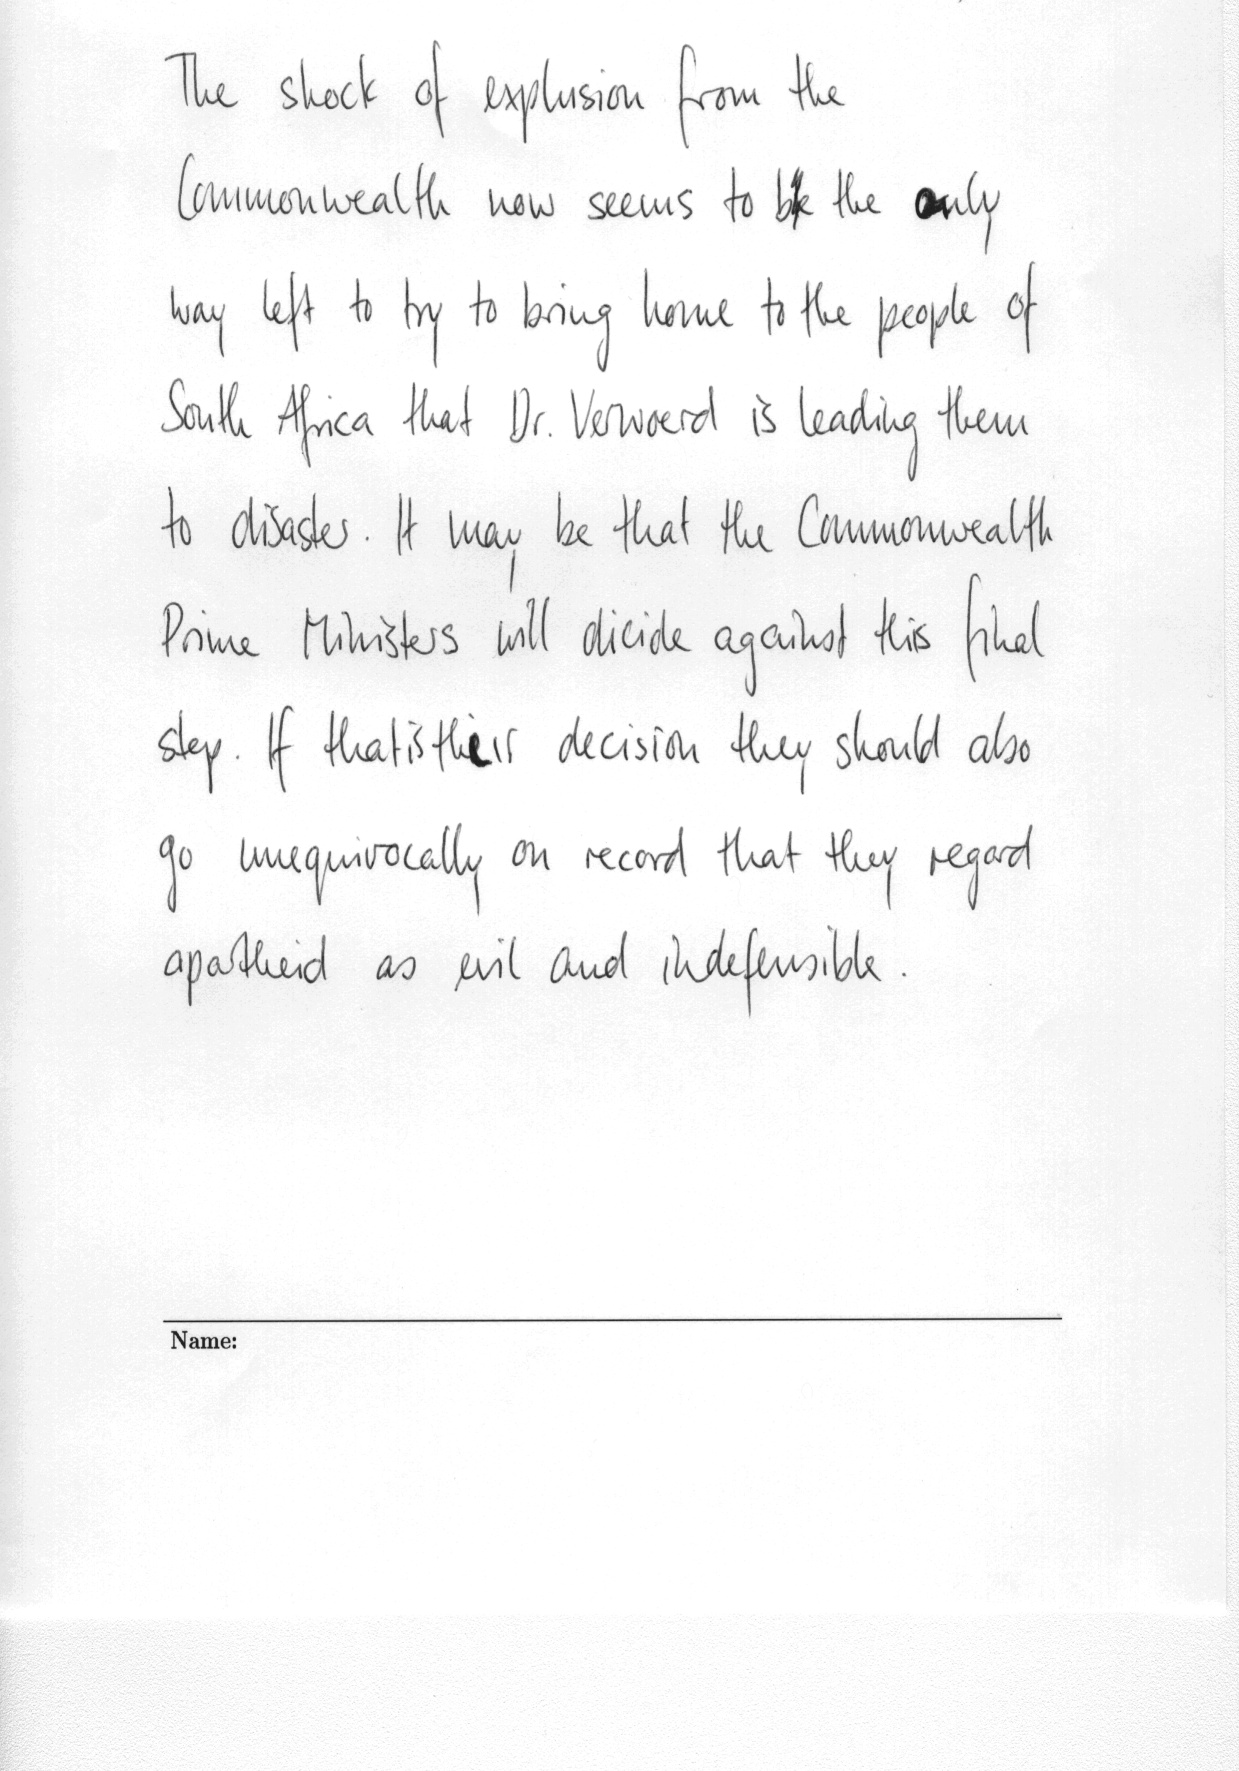 The shock of explusion from the
Commonwealth now seems to be the only
way left to try to bring home to the people of
South Africa that Dr. Verwoerd is leading them
to disaster. It may be that the Commonwealth
Prime Ministers will dicide against this final
step. If that is their decision they should also
go unequivocally on record that they regard
apartheid as evil and indefensible.
Name: